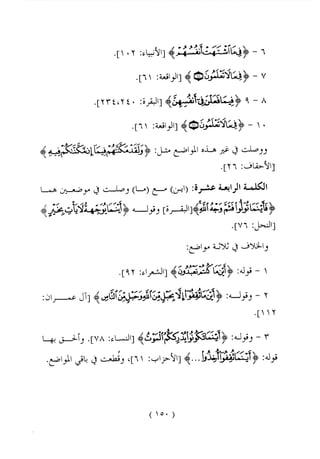 ٦ - ﴿فِي مَا اشْتَهَتْ أَنفُسُهُمْ﴾ [الأنبياء: ١٠٢].
٧ - ﴿فِي مَا لَا تَعْلَمُونَ﴾ [الواقعة: ٦١].
٨ - ٩ ﴿فِيمَا فَعَلْنَ فِي أَنفُسِهِنَّ﴾ [البقرة: ٢٣٤،٢٤٠].
١٠ - ﴿فِي مَا لَا تَعْلَمُونَ﴾ [الواقعة: ٦١].
ووصلت في غير هذه المواضع مثل: ﴿وَلَقَدْ مَكَّنَّاهُمْ فِيمَا إِن مَّكَّنَّاكُمْ فِيهِ﴾
[الأحقاف: ٢٦].
الكلمة الرابعة عشرة: (اين) مع (ما) وصلت في موضعين هما
﴿فَأَيْنَمَا تُوَلُّوا فَثَمَّ وَجْهُ اللَّهِ﴾ [البقرة] وقوله ﴿أَيْنَمَا يُوَجِّههُّ لَا يَأْتِ بِخَيْرٍ﴾
[النحل: ٧٦].
والخلاف في ثلاثة مواضع:
١ - قوله: ﴿أَيْنَ مَا كُنتُمْ تَعْبُدُونَ﴾ [الشعراء: ٩٢].
٢ - وقوله: ﴿أَيْنَ مَا ثُقِفُوا إِلَّا بِحَبْلٍ مِّنَ اللَّهِ وَحَبْلٍ مِّنَ النَّاسِ﴾ [آل عمران:
١١٢].
٣ - وقوله: ﴿أَيْنَمَا تَكُونُوا يُدْرِككُّمُ الْمَوْتُ﴾ [النساء: ٧٨]. وألحق بها
قوله: ﴿أَيْنَمَا ثُقِفُوا أُخِذُوا...﴾ [الأحزاب: ٦١]، وقطعت في باقي المواضع.
( ١٥٠ )